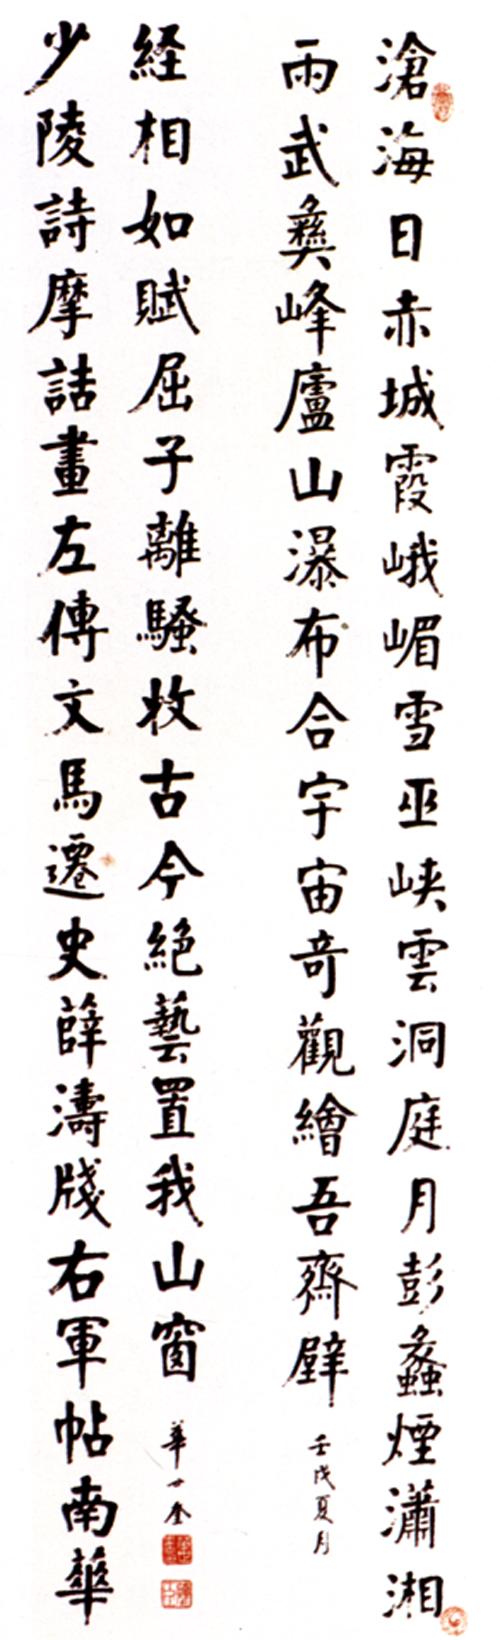 滄海日赤城霞峨嵋雪巫峡雲洞庭月彭蠡煙瀟湘
雨武彝峰廬山瀑布合宇宙奇觀繪吾齋壁
壬戌夏月
少陵詩摩詰畫左傳文馬遷史薛濤牋右軍帖南華
経相如賦屈子離騷收古今絕藝置我山窗
華世奎